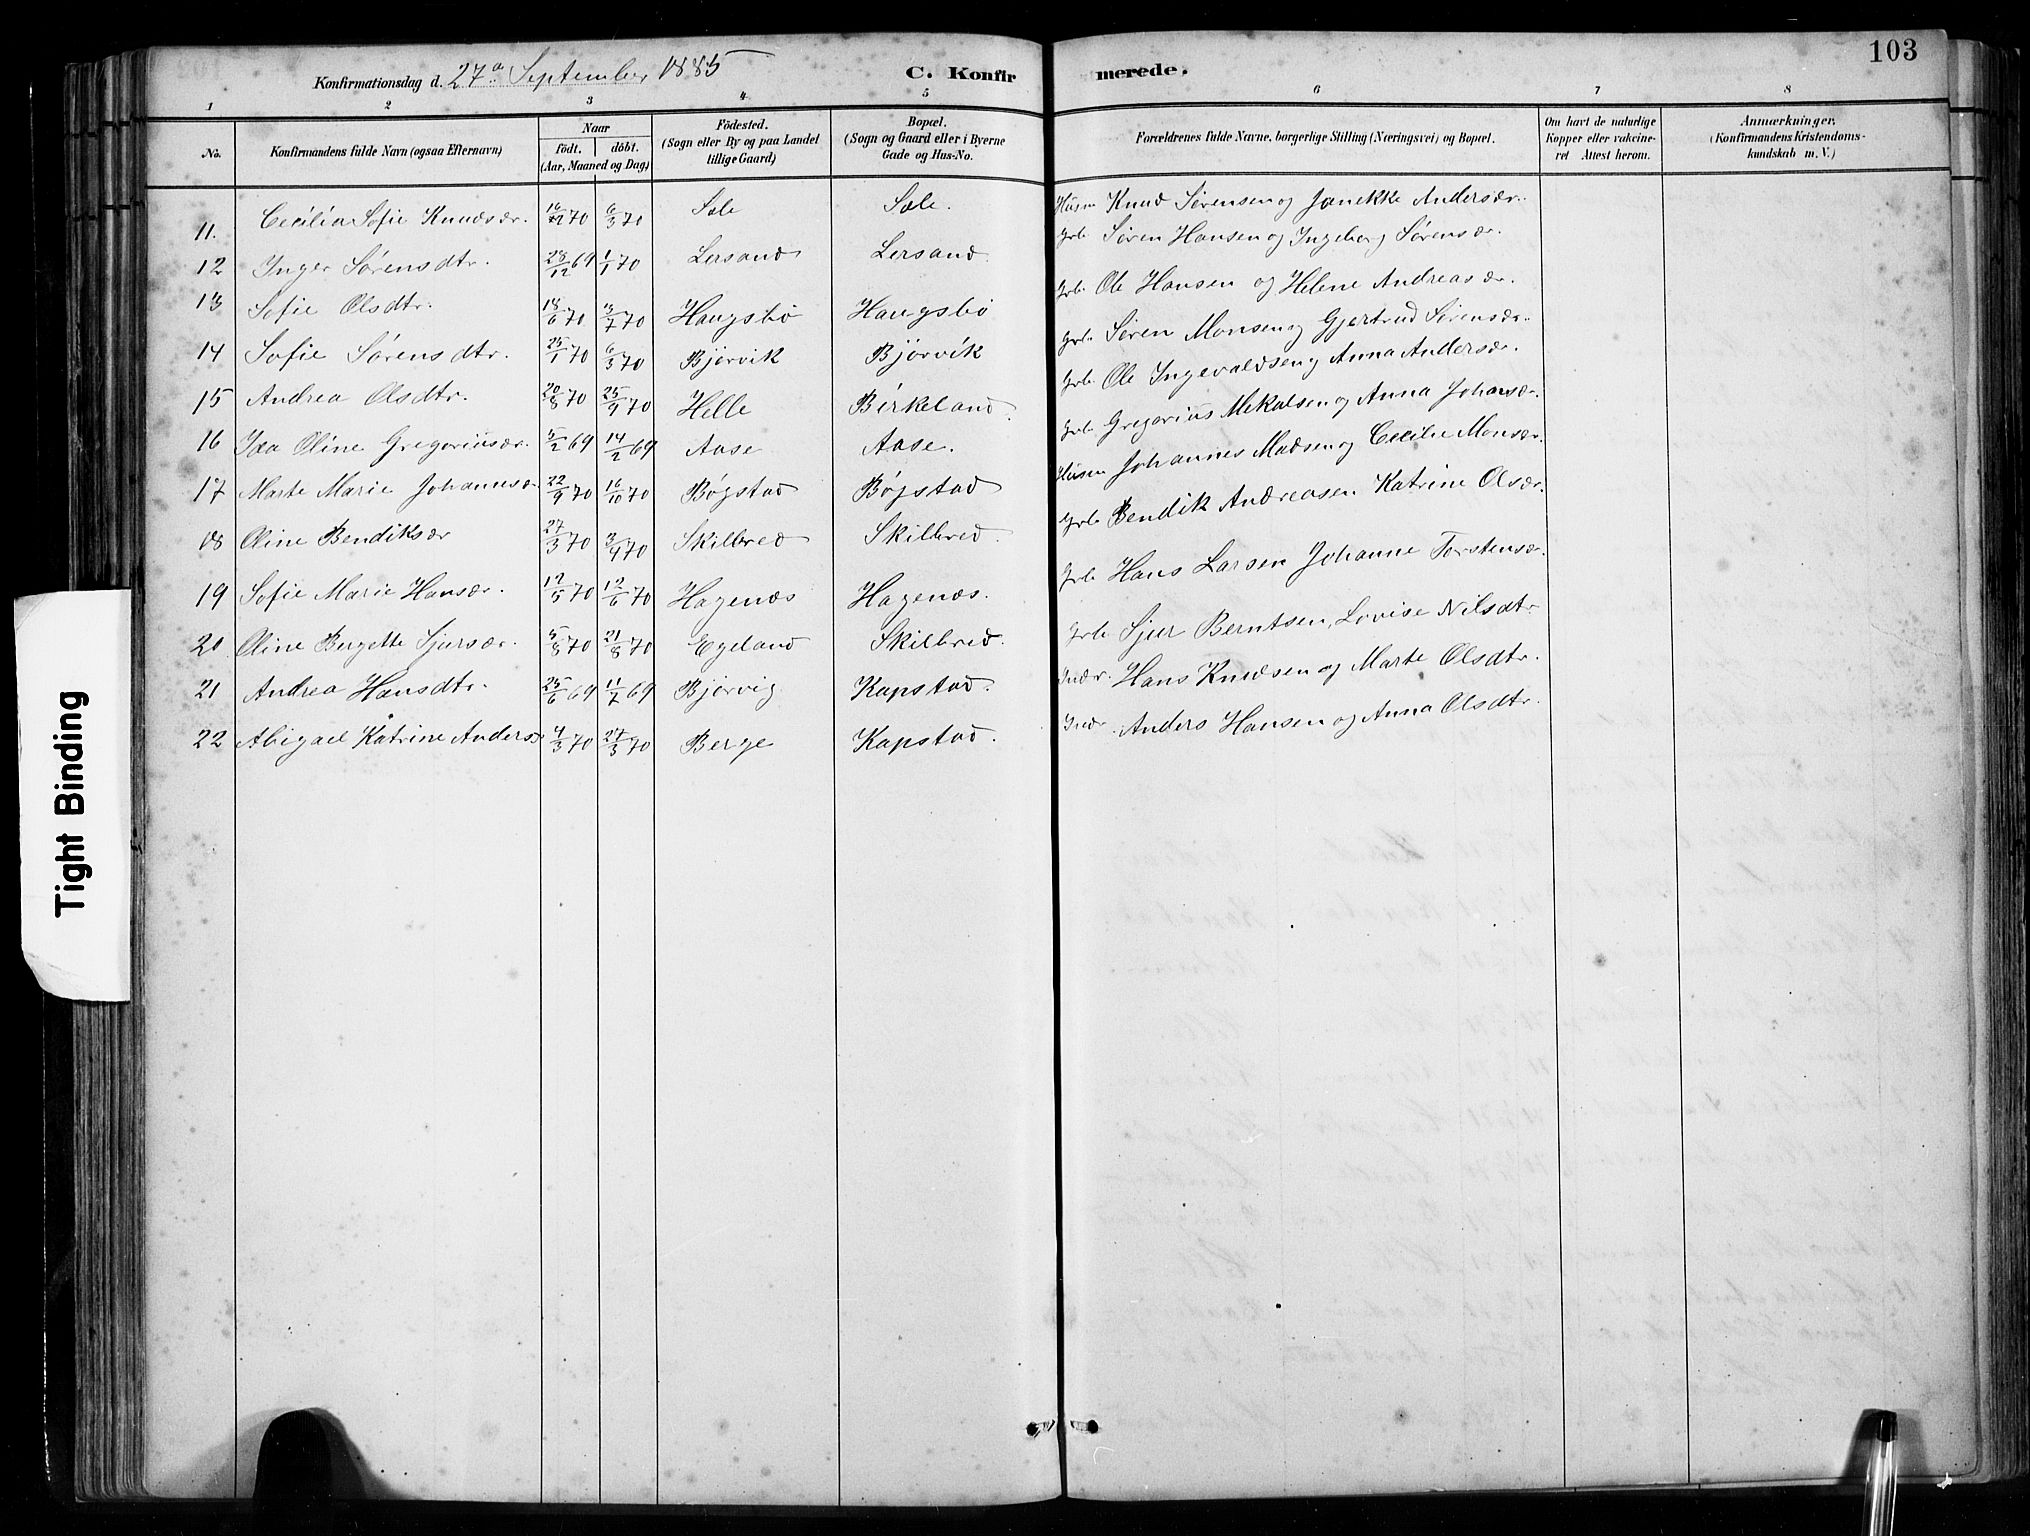 103
Konfirmationsdag d. 27de September 1885 C. Konfirmerede.
1 2 3 4 5 6 7 8
No. Konfirmandens fulde Navn (ogsaa Efternavn) Naar födt. döbt. (Aar, Maaned og Dag) Födested. (Sogn eller By og paa Landet tillige Gaard) Bopæl. (Sogn og Gaard eller i Byerne Gade og Hus-No. Forældrenes fulde Navne, borgerlige Stilling (Næringsvei) og Bopæl. Om havt de naturlige Kopper eller vakcineret Attest herom. Anmærkninger. (Konfirmandens Kristendomskundskab m. V.)
11. Cecilia Sofie Knudsdr. 70 6/3 70 Sæle Sæle. Husm Knud Sørensen og Janekke Andersdr.
12 Inger Sørensdtr. 28/12 69 1/1 70 Lersand Lersand. Grb. Søren Hansen og Ingeborg Sørensdr.
13 Sofie Olsdtr. 18/6 70 3/7 70 Haugsbø Haugsbø Grb. Ole Hansen og Helene Andreasdr.
14 Sofie Sørensdtr. 25/1 70 6/3 70 Bjørvik Bjørvik Grb. Søren Monsen og Gjertrud Sørensdr.
15 Andrea Olsdtr. 20/8 70 25/9 70 Helle Birkeland. Grb. Ole Ingevaldsen og Anna Andersdr.
16 Ida Oline Gregoriusdr. 5/2 69 14/2 69 Aase Aase. Grb. Gregorius Mikalsen og Anna Johansdr.
17 Marte Marie Johannesdr 22/9 70 16/10 70 Bøgstad Bøgstad Husm Johannes Madsen og Cecilie Monsdr.
18 Oline Bendiksdr 27/3 70 3/4 70 Skilbred Skilbred. Grb Bendik Andreasen Katrine Olsdr.
19 Sofie Marie Hansdr. 12/5 70 12/6 70 Hagenæs Hagenæs. Grb Hans Larsen Johanne Torstensdr.
20 Oline Bergette Sjursdr. 5/8 70 21/8 70 Egeland Skilbred. Grb Sjur Berntsen, Lovise Nilsdtr
21 Andrea Hansdtr. 25/6 69 11/7 69 Bjørvig Kapstad. Indr. Hans Knudsen og Marte Olsdtr.
22 Abigael Katrine Andersd 4/3 70 27/3 70 Berge Kapstad. Indr. Anders Hansen og Anna Olsdtr.
Tight Binding